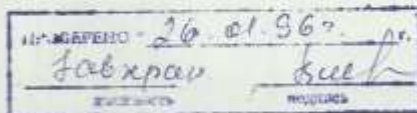 ПРОВЕРЕНО 26.01.96г. г.
Завхраи
должность подпись